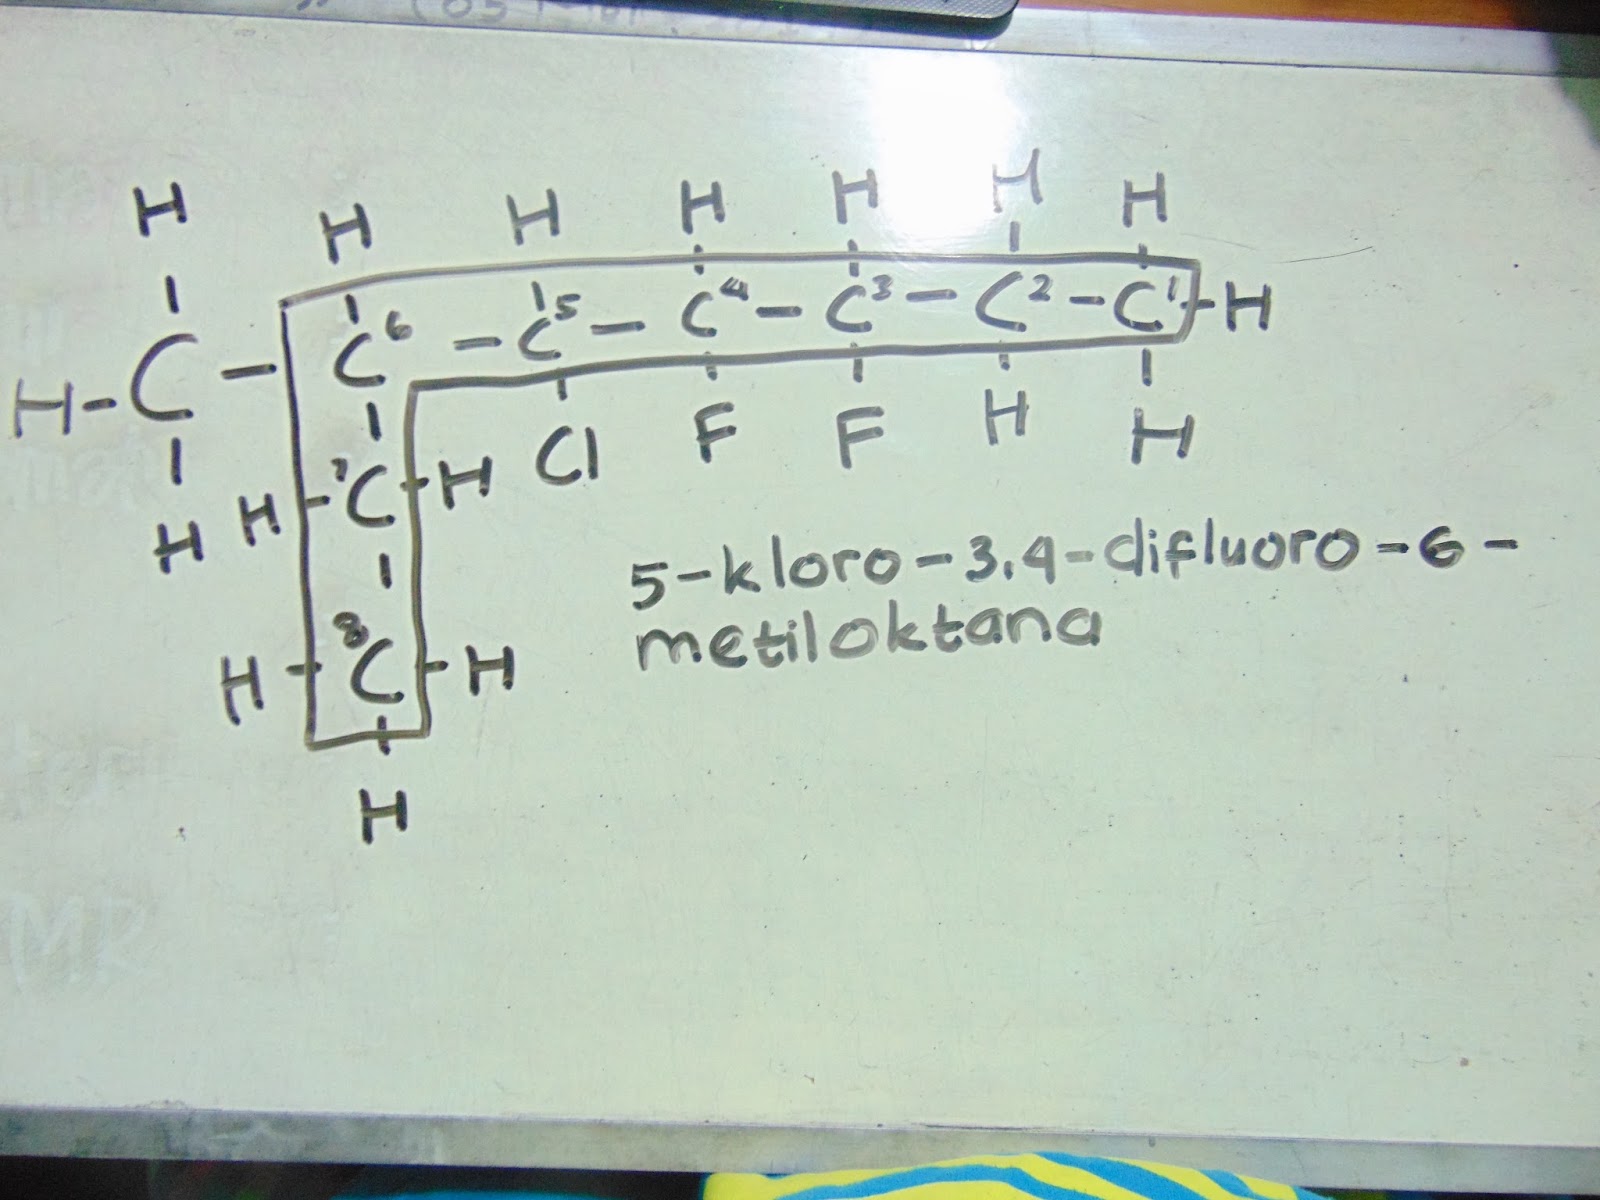 H H H H H H H
H-C-C⁶-C⁵-C⁴-C³-C²-C¹-H
H Cl F F H H
H-⁷C-H
5-kloro-3,4-difluoro-6-
metiloktana
H-⁸C-H
H